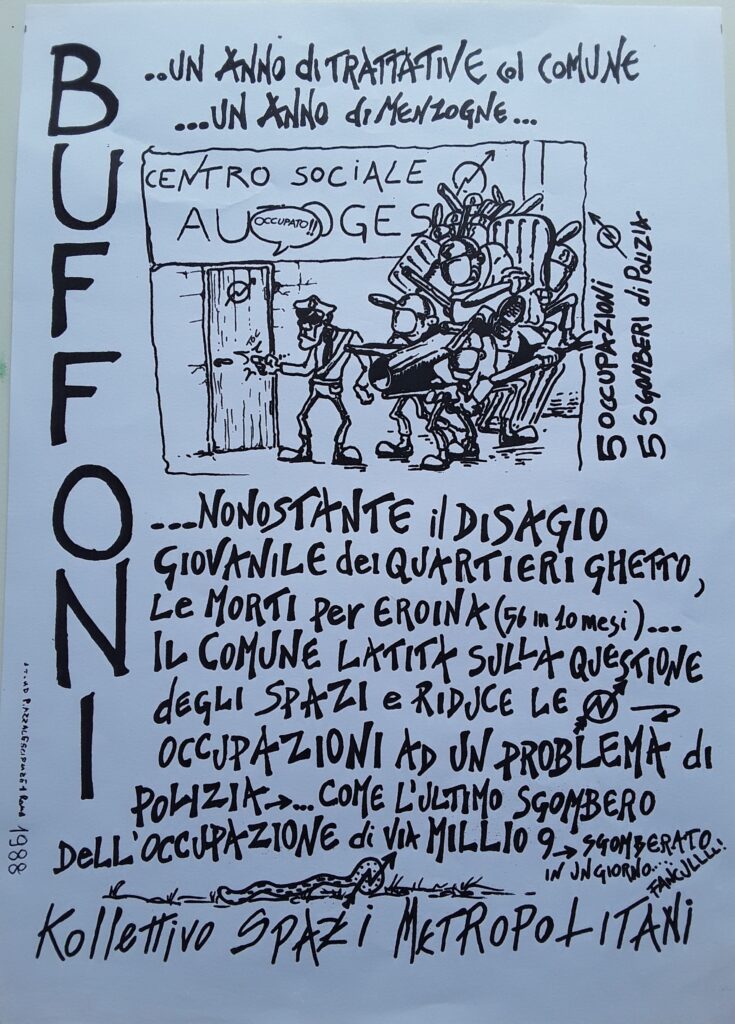 BUFFONI
..UN ANNO di TRATTATIVE col COMUNE
...UN ANNO di MENZOGNE...
CENTRO SOCIALE
AU GES
OCCUPATO!!
5 OCCUPAZIONI
5 SGOMBERI di POLIZIA
....NONOSTANTE il DISAGIO
GIOVANILE dei QUARTIERI GHETTO,
Le MORTI per EROINA (56 in 10 mesi)....
IL COMUNE LATITA SULLA QUESTIONE
degli SPAZI e RIDUCE LE
OCCUPAZIONI AD UN PROBLEMA di
POLIZIA→... COME L'ULTIMO SGOMBERO
DELL'OCCUPAZIONE di VIA MILLIO 9→ SGOMBERATO
IN UN GIORNO....
FANCULLLL!
Kollettivo SPAZI METROPOLITANI
1988